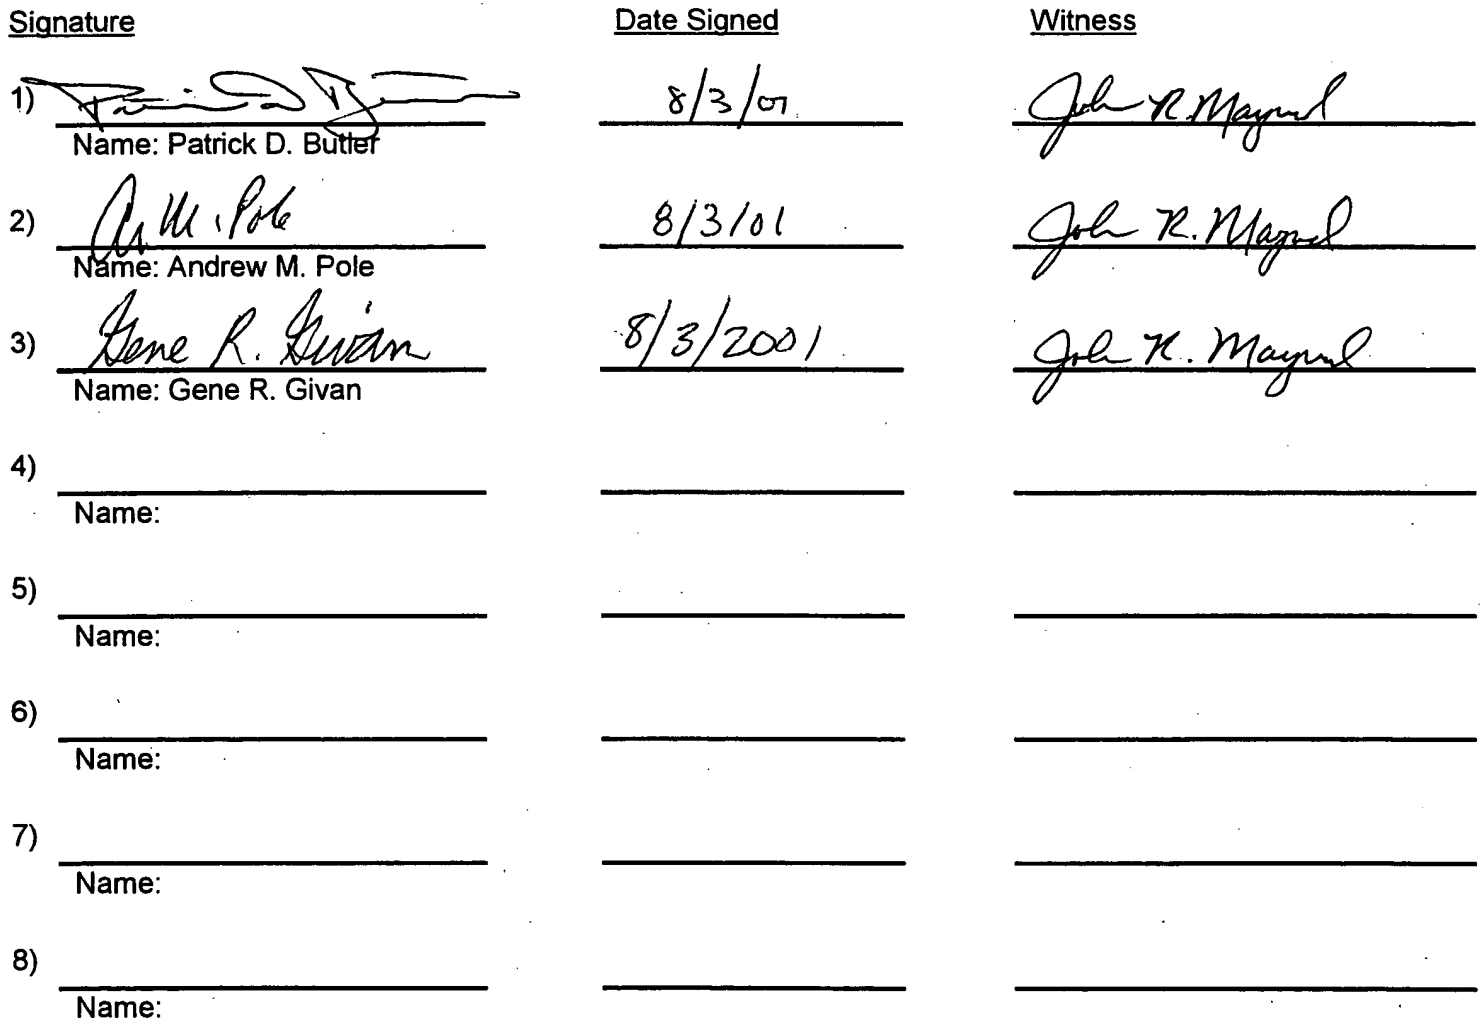 Signature Date Signed Witness
1) Patrick D. Butler 8/3/01 John R. Maynard
Name: Patrick D. Butler
2) A. M. Pole 8/3/01 John R. Maynard
Name: Andrew M. Pole
3) Gene R. Givan 8/3/2001 John R. Maynard
Name: Gene R. Givan
4)
Name:
5)
Name:
6)
Name:
7)
Name:
8)
Name: